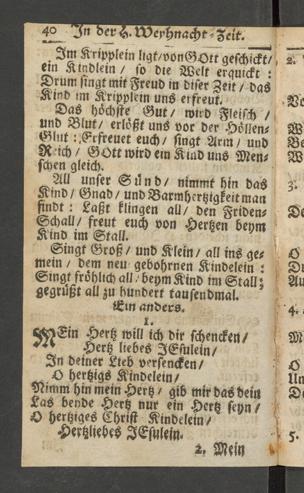 40 In der H. Weyhnacht-Zeit.
Im Kripplein ligt/ von GOtt geschickt/
ein Kindlein/ so die Welt erquickt:
Drum singt mit Freud in diser Zeit/ das
Kind im Kripplein uns erfreut.
Das höchste Gut/ wird Fleisch/
und Blut/ erlößt uns vor der Höllen-
Glut: Erfreuet euch/ singt Arm/ und
Reich/ GOtt wird ein Kind uns Men-
schen gleich.
All unser Sünd/ nimmt hin das
Kind/ Gnad/ und Barmhertzigkeit man
findt: Laßt klingen all/ den Friden-
Schall/ freut euch von Hertzen beym
Kind im Stall.
Singt Groß/ und Klein/ all ins ge-
mein/ dem neu gebohrnen Kindelein:
Singt fröhlich all/ beym Kind im Stall;
gegrüßt all zu hundert tausendmal.
Ein anders.
1.
MEin Hertz will ich dir schencken/
Hertz liebes JEsulein/
In deiner Lieb versencken/
O hertzigs Kindelein/
Nimm hin mein Hertz/ gib mir das dein
Las beyde Hertz nur ein Hertz seyn/
O hertziges Christ Kindelein/
Hertzliebes JEsulein.
2. Mein
2.
3.
4.
5.